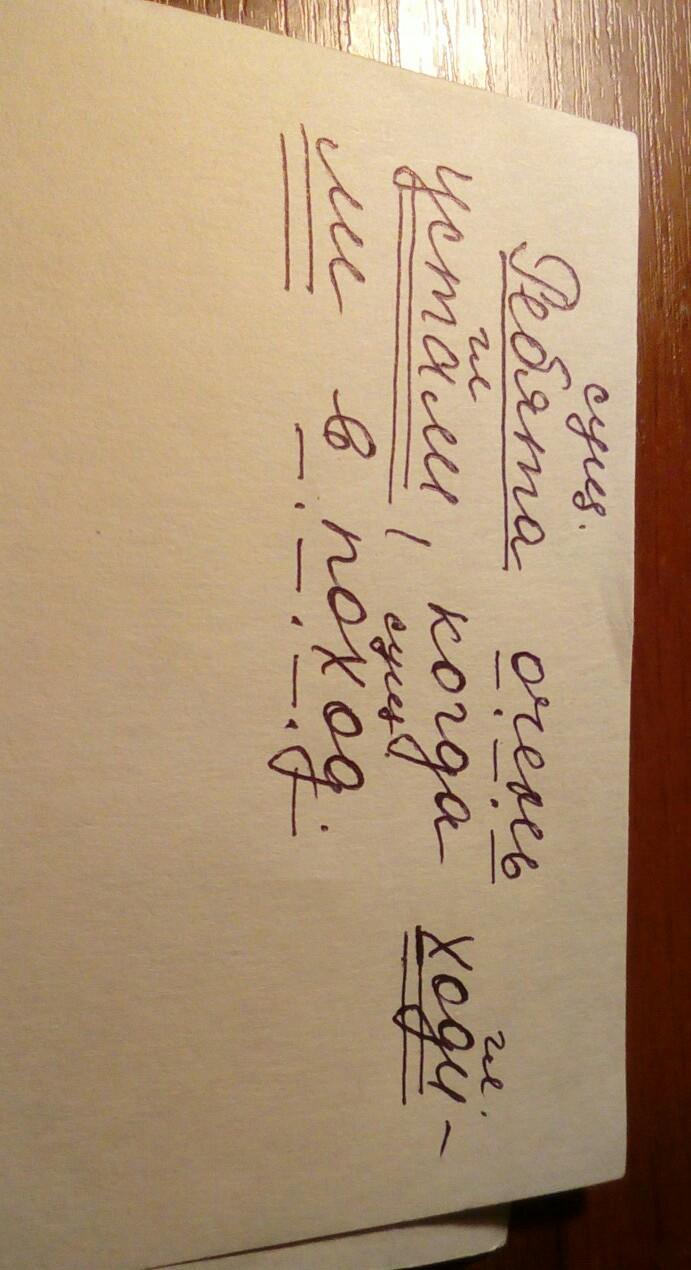 сущ.
Ребята очень
гл гл.
устали, когда ходи-
сущ
ли в поход.